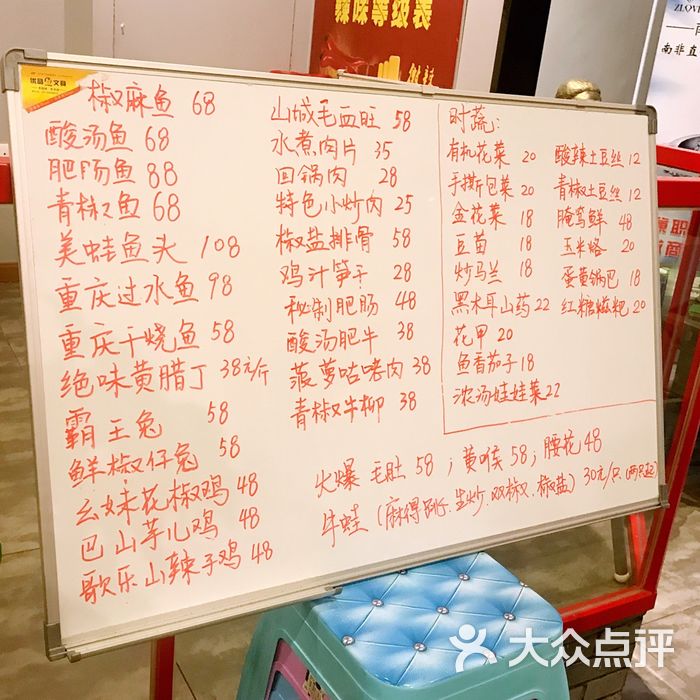 辣味等级表
ZLOVE
南非直
优品文具
椒麻鱼 68
酸汤鱼 68
肥肠鱼 88
青椒鱼 68
美蛙鱼头 108
重庆过水鱼 98
重庆干烧鱼 58
绝味黄腊丁 38元/斤
霸王兔 58
鲜椒仔兔 58
幺妹花椒鸡 48
巴山芋儿鸡 48
歌乐山辣子鸡 48
山城毛血旺 58
水煮肉片 35
回锅肉 28
特色小炒肉 25
椒盐排骨 58
鸡汁笋子 28
秘制肥肠 48
酸汤肥牛 38
菠萝咕咾肉 38
青椒牛柳 38
时蔬:
有机花菜 20
手撕包菜 20
金花菜 18
豆苗 18
炒马兰 18
黑木耳山药 22
花甲 20
鱼香茄子 18
浓汤娃娃菜 22
酸辣土豆丝 12
青椒土豆丝 12
腌笃鲜 48
玉米烙 20
蛋黄锅巴 18
红糖糍粑 20
火爆毛肚 58；黄喉 58；腰花 48
牛蛙(麻得跳、生炒、双椒、椒盐) 30元/只(两只起)
大众点评